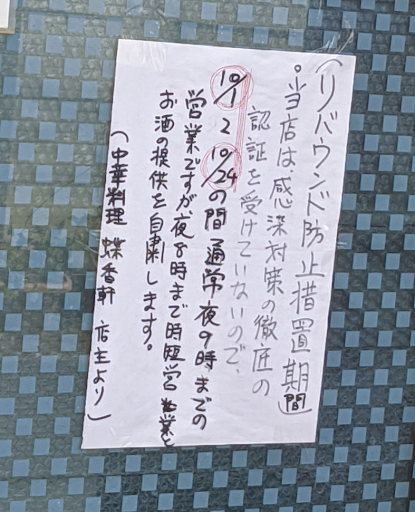 (リバウンド防止措置期間)
・当店は感染対策の徹底の
認証を受けていないので、
10/1 〜 10/24の間通常夜9時までの
営業ですが夜8時まで時短営業と
お酒の提供を自粛します。
(中華料理 蝶香軒 店主より)